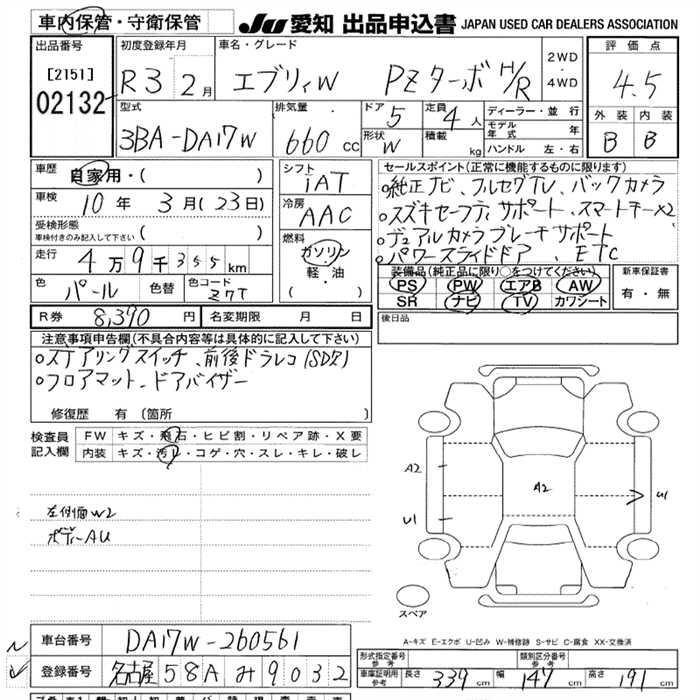 車内保管・守衛保管
JU 愛知 出品申込書 JAPAN USED CAR DEALERS ASSOCIATION
出品番号
[2151]
02132
初度登録年月
R3 2月
車名・グレード
エブリィW PZターボ H/R
2WD
4WD
評価点
4.5
外装 内装
B B
型式
3BA-DA17W
排気量
660 cc
ドア
5
定員
4人
形状
W
積載
kg
ディーラー・並行
モデル年式 年
ハンドル 左・右
車歴
自家用・( )
車検
10年 3月(23日)
受検形態
車検付きのみ記入して下さい ( )
走行
4万9千355km
色
パール
色替
色コード
Z7T
シフト
IAT
冷房
AAC
燃料
ガソリン
軽・油
( ・ )
セールスポイント(正常に機能するものに限ります)
○純正ナビ、フルセグTV、バックカメラ
○スズキセーフティサポート、スマートキー×2
○デュアルカメラブレーキサポート
○パワースライドドア、ETC
装備品(純正品に限り○をつけてください)
PS PW エアB AW
SR ナビ TV カワシート
新車保証書
有・無
R券 8,390 円
名変期限 月 日
後日品
注意事項申告欄(不具合内容等は具体的に記入して下さい)
○ステアリングスイッチ、前後ドラレコ(SD欠)
○フロアマット、ドアバイザー
修復歴 有 (箇所 )
検査員
記入欄
FW キズ・飛石・ヒビ割・リペア跡・X要
内装 キズ・汚レ・コゲ・穴・スレ・キレ・破レ
左付価W2
ボデーAU
A2
A2
U1
U1
スペア
A-キズ E-エクボ U-凹み W-補修跡 S-サビ C-腐食 XX-交換済
車台番号 DA17W-260561
登録番号 名古屋 58A み 9032
形式指定番号
参考
類別区分番号
参考
車庫証明用
参考
長さ 339cm 幅 147cm 高さ 191cm